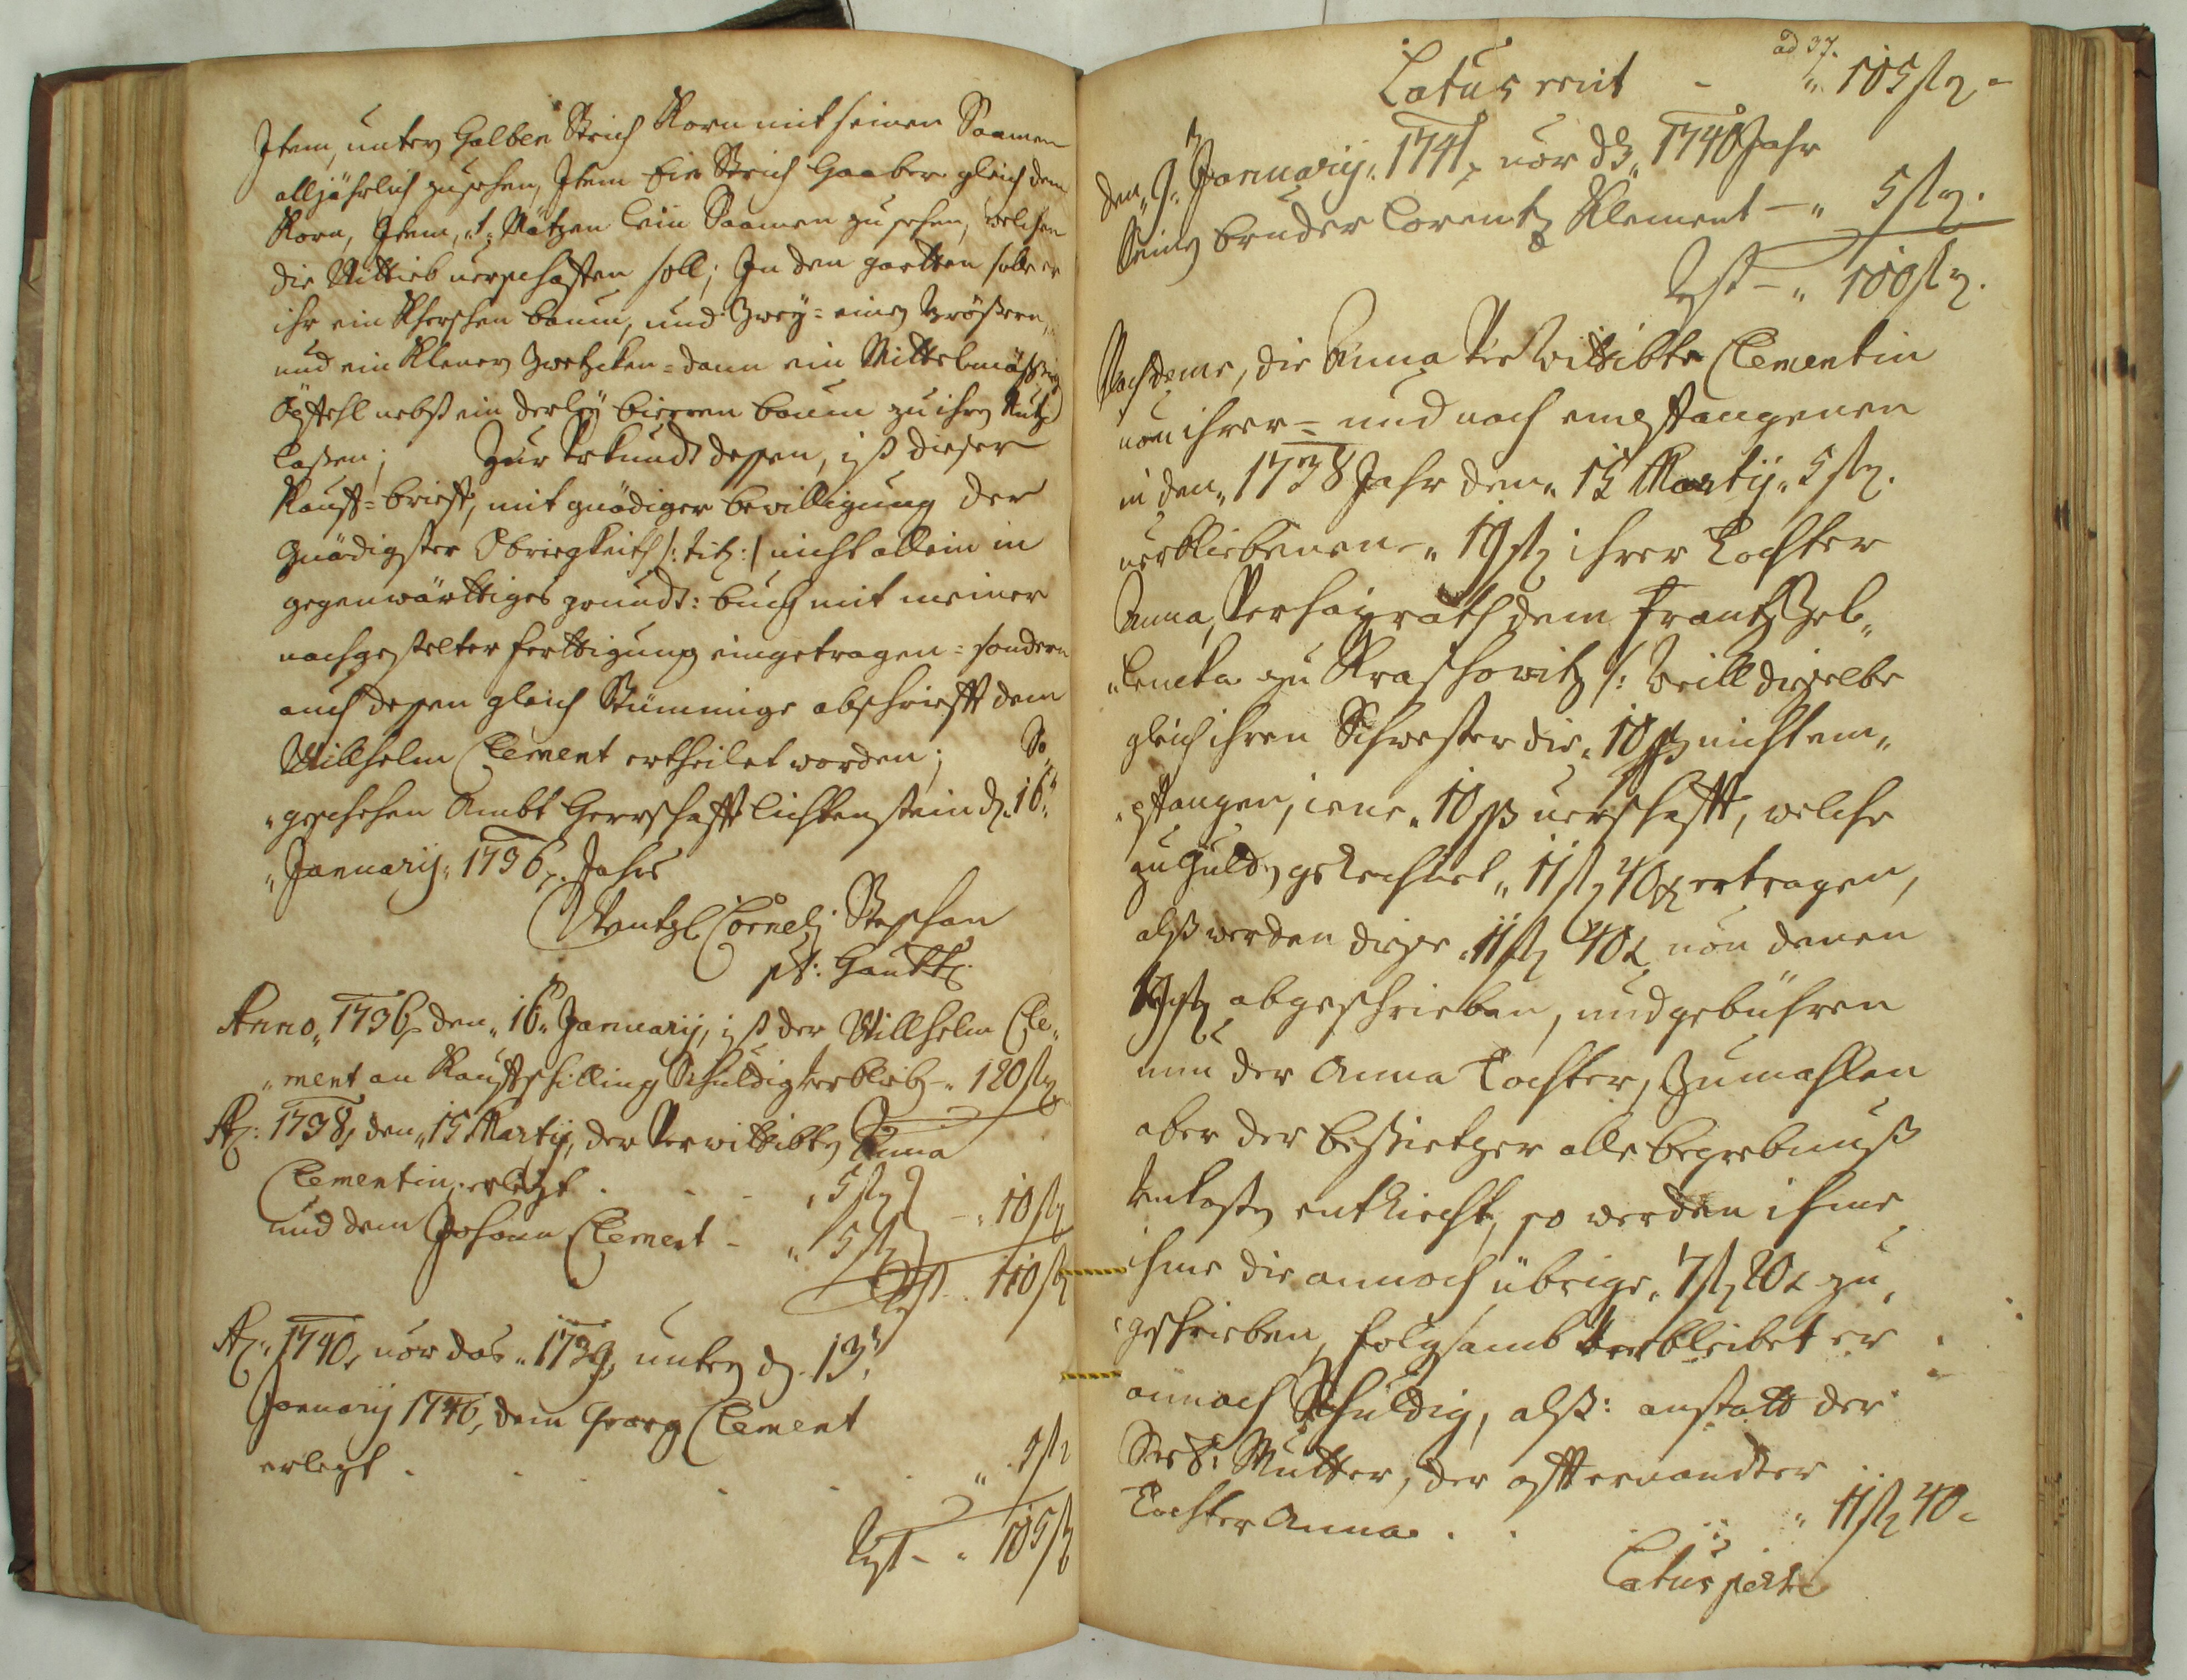 Item, unter Halben Strich Korn mit seinen Saamen
alljährlich zusehen, Item Ein Strich Haaber gleich dem
Korn, Item, 1. Mätzen Lein Saamen zu sehen, welchen
die Wittib verschaffen soll; In den gartten solle er
ihr ein Kherschen baum, und Zwey = einen Größeren,
und ein Klener Zwetzken = dann ein Mittelmässig
Öpffehl nebst ein derleÿ bierren baum zu ihren Nutz
lassen; Zur Urkundt dessen, ist dieser
Kauff = brieff, mit gnädiger bewilligung der
Gnädigster Obrigkeith /: tit: / nicht allein in
gegenwärttiges grundt: buch mit meiner
nachgestelter ferttigung eingetragen = sondern
auch dessen gleich Stümmige abschrifft dem
Willhelm Clement ertheilet worden; So
geschehen Ambt Herrschafft Lichtenstein d. 16.
Januarij. 1736. Jahrs
Wentzl Cornelj Stephan
pt: Haubtt.
Anno, 1736, den 16. Januarij, ist der Willhelm Cle„
„ment an Kauffschilling Schuldig verblieb „ 120 fl
Ao: 1738, den 15 Martij, der Verwittibten Anna
Clementin, erlegt . - - „ 5 fl
und dem Johann Clement - „ 5 fl - „ 10 fl
Rest - 110 fl
Ao: 1740, vor das 1739, unter d. 13.
Januarij 1740, dem Georg Clement
erlegt . . . . „ 5 fl
Rest - „ 105 fl
ad 37.
Latus mit - „ 105 fl -
den 9. Januarij. 1741, vor dz 1740 Jahr
Seinen bruder Lorentz Klement - „ 5 fl.
Rest - „ 100 fl.
Nachdeme, die Anna Ver Wittibte Clementin
von ihrer = und noch empfangenen
in den 1738 Jahr den 15 Martij 5 fl.
verbliebenen „ 19 fl ihrer Tochter
Anna, Verhayrath dem Frantz
zu Kraschowitz /: Weill dieselbe
gleich ihren Schwester die 10 ß nicht em„
„pfangen, iene 10 ß verschafft, welche
zu Guld. gerechnet „ 11 fl 40 x ertragen,
alß werden diese 11 fl 40 x von denen
19 fl abgeschrieben, und gebühren
nun der Anna Tochter, Zumahlen
aber der besietzer alle begrebnuß
unkosten entricht, so werden ihme
ihme die annoch übrige 7 fl 20 x zu
geschrieben, folgsamb Verbleibet er
annoch Schuldig, alß: anstatt der
Mutter, der
Tochter Anna . . . „ 11 fl 40 -
Latus